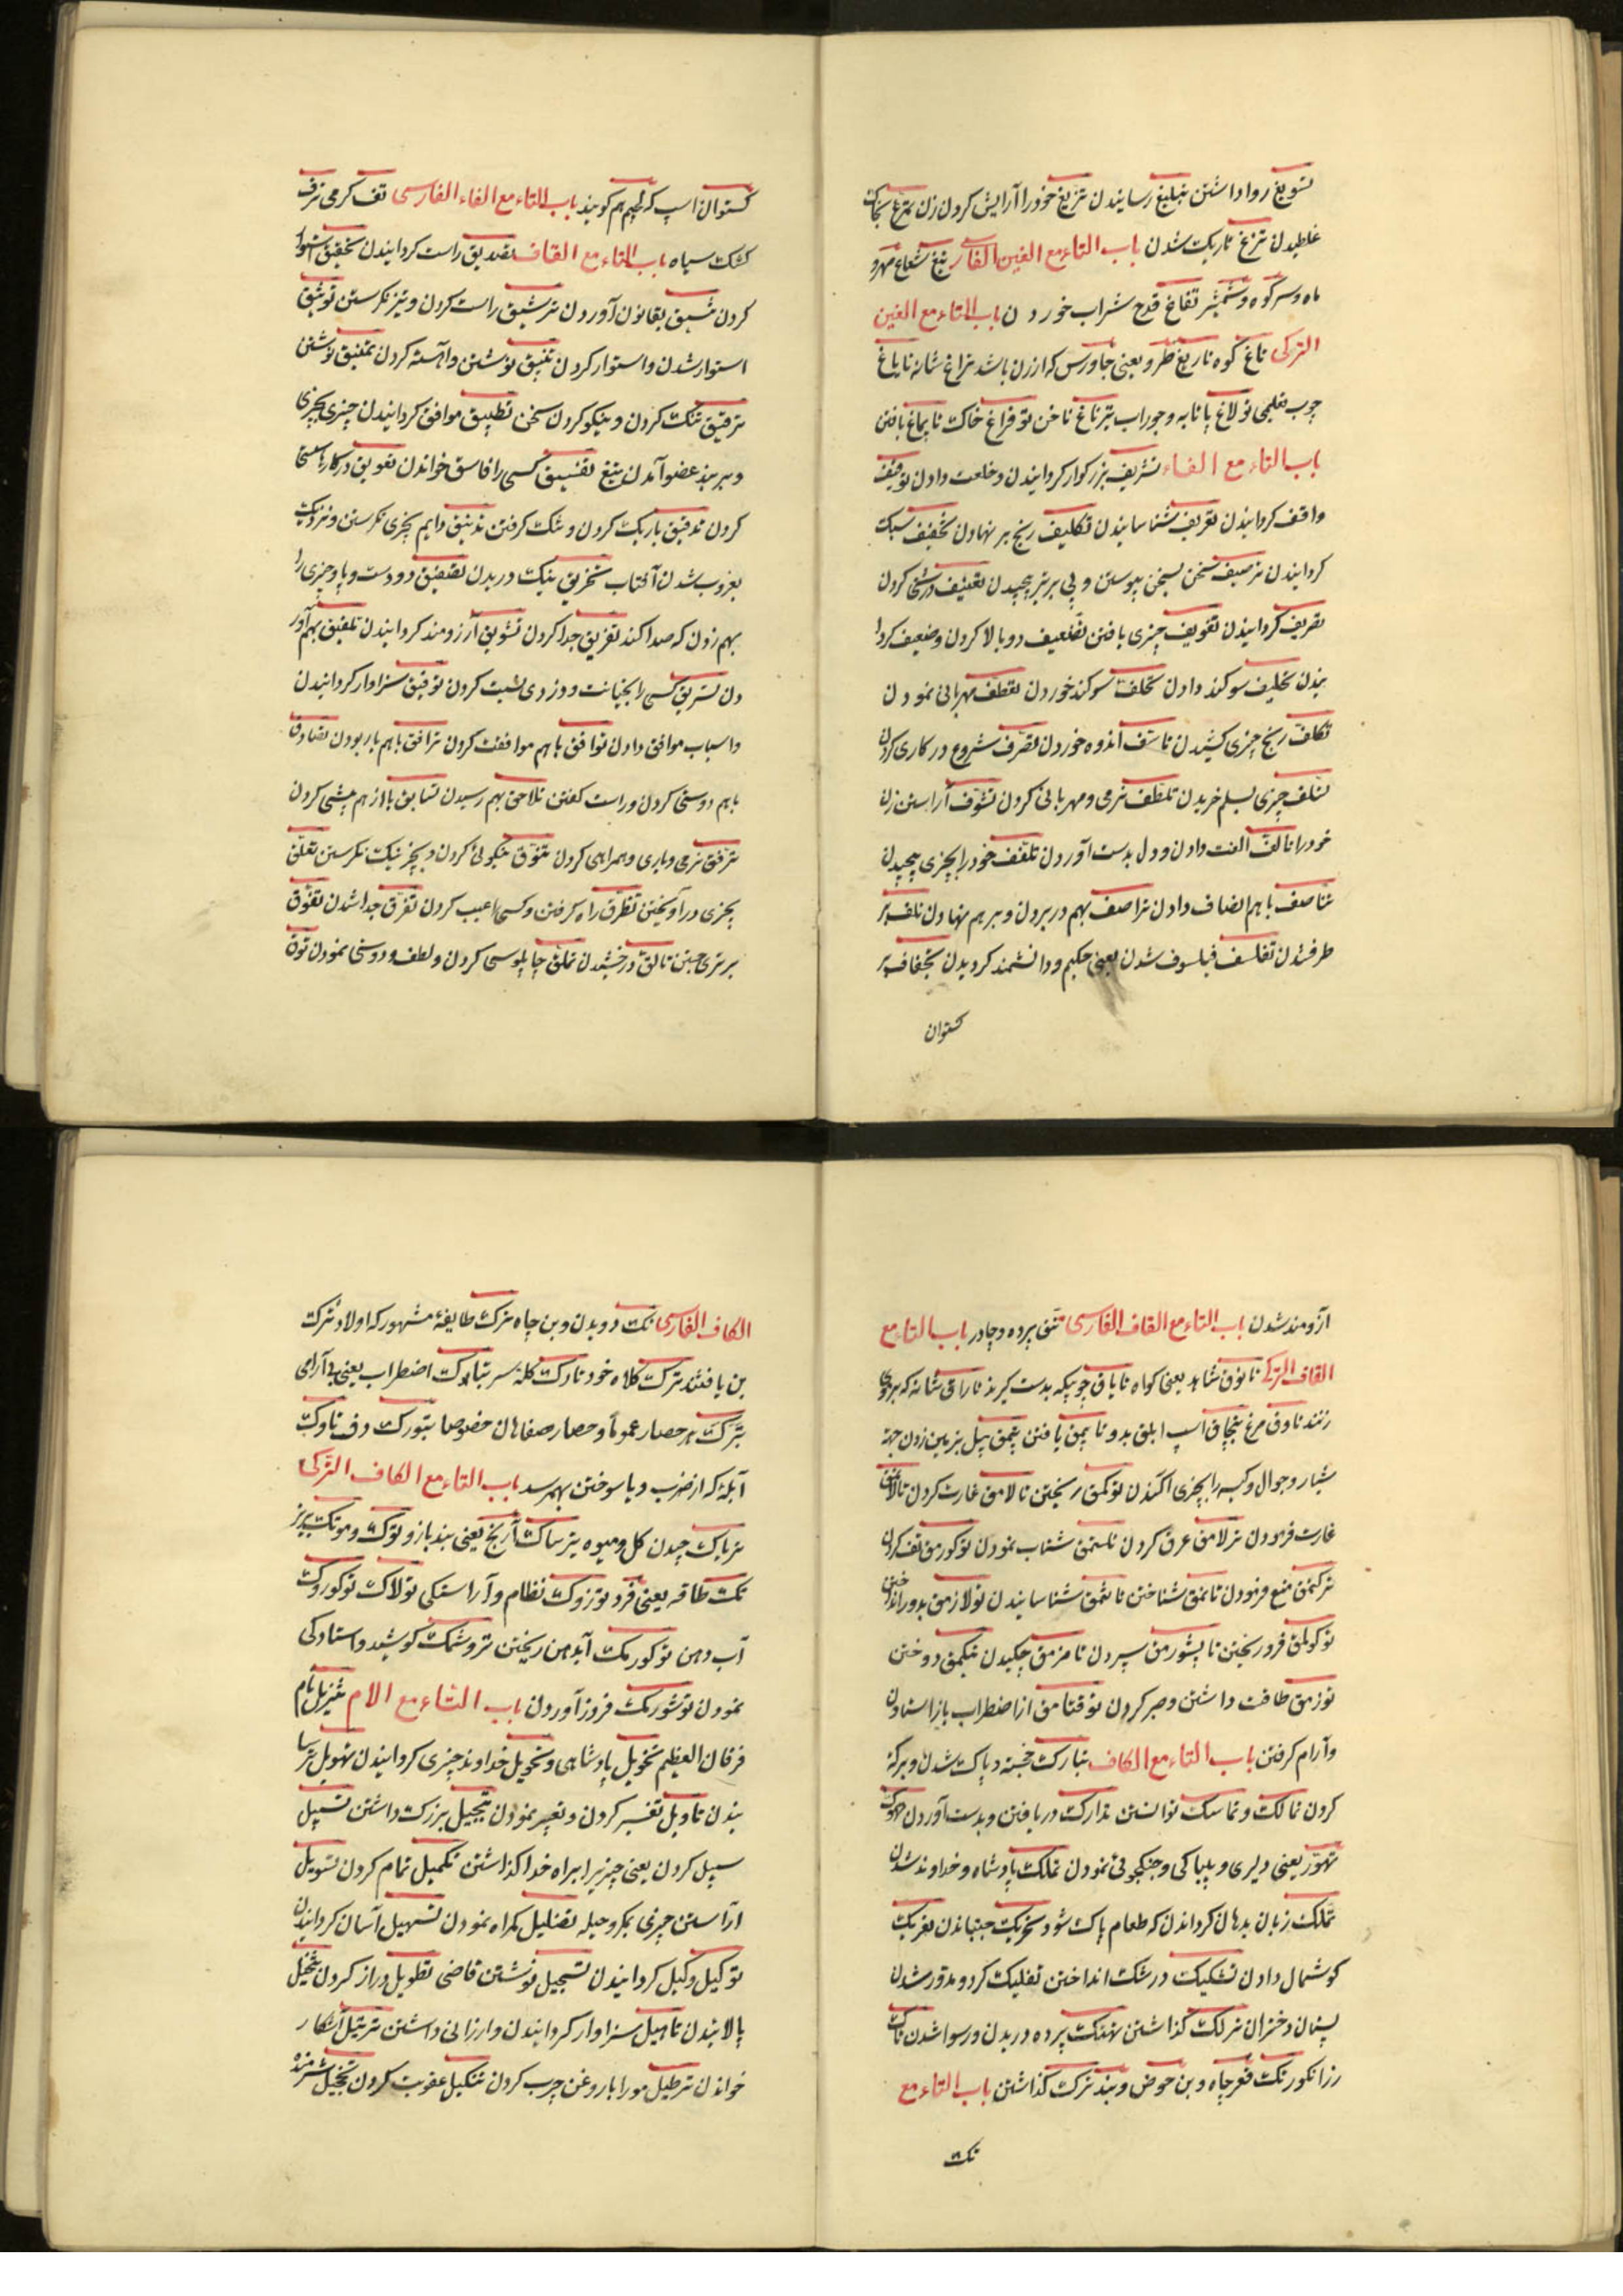 تسویغ روا داشتن تبلیغ رسانیدن تزیغ خود را آرایش کردن زن تمرغ بخاک
غلطیدن تزغ تاریک شدن باب التاء مع الغین الفارسی تیغ شعاع مهر و
ماه و سر کوه و شمشیر تفاغ قدح شراب خوردن باب التاء مع الغین
الترکی تاغ کوه تاریغ طرو یعنی جاورس که ارزن باشد تراغ شانه تایاغ
چوب تولاغ پاتابه و جوراب تیرناغ ناخن توفراغ خاک تاپماغ یافتن
باب التاء مع الفاء تشریف بزرکوار کردانیدن و خلعت دادن توقیف
واقف کردانیدن تعریف شناسانیدن تکلیف رنج بر نهادن تخفیف سبک
کردانیدن ترصیف سخن بسخن پیوستن و پی بر تیر پیچیدن تعنیف درشتی کردن
تقریف کردانیدن تقویف چیزی یافتن تضعیف دوبالا کردن و ضعیف کردا
نیدن تحلیف سوکند دادن تحلف سوکند خوردن تعطف مهربانی نمودن
تکلف رنج چیزی کشیدن تاسف اندوه خوردن تصرف شروع در کاری کردن
تسلف چیزی بسلم خریدن تلطف نرمی و مهربانی کردن تشوف آراستن زن
خود را تالف الفت دادن و دل بدست آوردن تلفف خود را بچیزی پیچیدن
تناصف باهم انصاف دادن تراصف بهم در بردن و بر هم نهادن تلف بر
طرف شدن تفلسف فیلسوف شدن یعنی حکیم و دانشمند کردیدن تجفاف بر
کستوان
کستوان اسپ که لجیم هم کویند باب التاء مع الفاء الفارسی تف کرمی ترف
کشک سیاه باب التاء مع القاف تصدیق راست کردانیدن تحقیق استوار
کردن تنسیق بقانون آوردن ترشیق راست کردن و تیز نکرستن توثیق
استوار شدن و استوار کردن تنمیق نوشتن و آهسته کردن تمنیق نوشتن
ترقیق تنک کردن و نیکو کردن سخن تطبیق موافق کردانیدن چیزی بچیزی
و بر بند عضو آمدن تیغ تفسیق کسی را فاسق خواندن تعویق در کارها
کردن تدقیق باریک کردن و تنک کرفتن تدنیق دایم بچیزی نکرستن و نزدیک
بغروب شدن آفتاب تخریق نیک دریدن تصفیق دو دست و یا دو چیزی را
بهم زدن که صدا کند تفریق جدا کردن تشویق آرزومند کردانیدن تلفیق بهم آور
دن تسریق کسی را بخیانت و دزدی نسبت کردن توفیق سزاوار کردانیدن
و اسباب موافق دادن توافق باهم موافقت کردن ترافق باهم یار بودن تصادق
باهم دوستی کردن و راست کفتن تلاحق بهم رسیدن تسابق با از هم پیشی کردن
ترفق نرمی و یاری و همراهی کردن تنوق نیکوئی کردن و بچیز نیک نکرستن تعلق
بچیزی در آویختن تطرق راه کرفتن و کسی را عیب کردن تفرق جدا شدن تفوق
برتری جستن تالق درخشیدن تملق چاپلوسی کردن و لطف و دوستی نمودن توق
آرزومند شدن باب التاء مع القاف الفارسی تتق پرده و چادر باب التاء مع
القاف الترکی تانوق شاهد یعنی کواه تایاق چوبیکه بدست کیرند تاراق شانه که بر موی
زنند تاوق مرغ تپچاق اسپ ابلق بدو تاپمق یافتن تپمق بیل بزمین زدن جهة
شیار و جوال و کیسه را بچیزی اکندن توکمق ریختن تالامق غارت کردن تالاتمق
غارت فرمودن ترلامق عرق کردن تلسمق شتاب نمودن توکورمق تف کردن
ترکتمق منع فرمودن تانمق شناختن تانتمق شناسانیدن تولازمق بدور انداختن
توکولمق فرو ریختن تاپشورمق سپردن تامزمق چکیدن تیکمق دوختن
توزمق طاقت داشتن و صبر کردن توقتامق از اضطراب باز استادن
و آرام کرفتن باب التاء مع الکاف تبارک خجسته و پاک شدن و برکة
کردن تمالک و تماسک توانستن تدارک دریافتن و بدست آوردن
تهور یعنی دلیری و بیباکی و جنکجوئی نمودن تملک پادشاه و خداوند شدن
تملک زبان بدهان کرداندن که طعام پاک شود تحریک جنبانیدن تعریک
کوشمال دادن تشکیک در شک انداختن تفلیک کرد و مدور شدن
پستان دختران ترلک کذاشتن تهتک پرده دریدن و رسوا شدن تاک
رز انکور تک قعر چاه و بن حوض و بند ترک کذاشتن باب التاء مع
تک
الکاف الفارسی تک دویدن و بن چاه ترک طایفهٔ مشهور که اولاد ترک
بن یافثند ترک کلاه خود تارک کلهٔ سر تبلوک اضطراب یعنی بی آرامی
تبرک حصار عموماً و حصار صفاهان خصوصا تبورک دف تاوک
آبلهٔ که از ضرب و یا سوختن بهم رسد باب التاء مع الکاف الترکی
ترپاک چیدن کل و میوه تیرساک آرنج یعنی بند بازو توک و موتک ریز
تک طاقه یعنی فرد توزوک نظام و آراستکی تولاک توکوروک
آب دهن توکورمک آبدهن ریختن تروشمک کوشید و استادکی
نمودن توشورمک فروز آوردن باب التاء مع الام تنزیل نام
فرقان العظیم تخویل پادشاهی و تحویل خداوند چیزی کردانیدن تهویل ترسا
نیدن تاویل تفسیر کردن و تعبیر نمودن تبجیل بزرک داشتن تسبیل
سبیل کردن یعنی چیزیرا براه خدا کذاشتن تکمیل تمام کردن تسویل
آراستن چیزی بمکر و حیله تضلیل کمراه نمودن تسهیل آسان کردانیدن
توکیل وکیل کردانیدن تسجیل نوشتن قاضی تطویل دراز کردن تنخیل
پالانیدن تاهیل سزاوار کردانیدن و ارزانی داشتن ترتیل آشکار
خواندن ترطیل مو را با روغن چرب کردن تنکیل عقوبت کردن تخجیل شرمنده